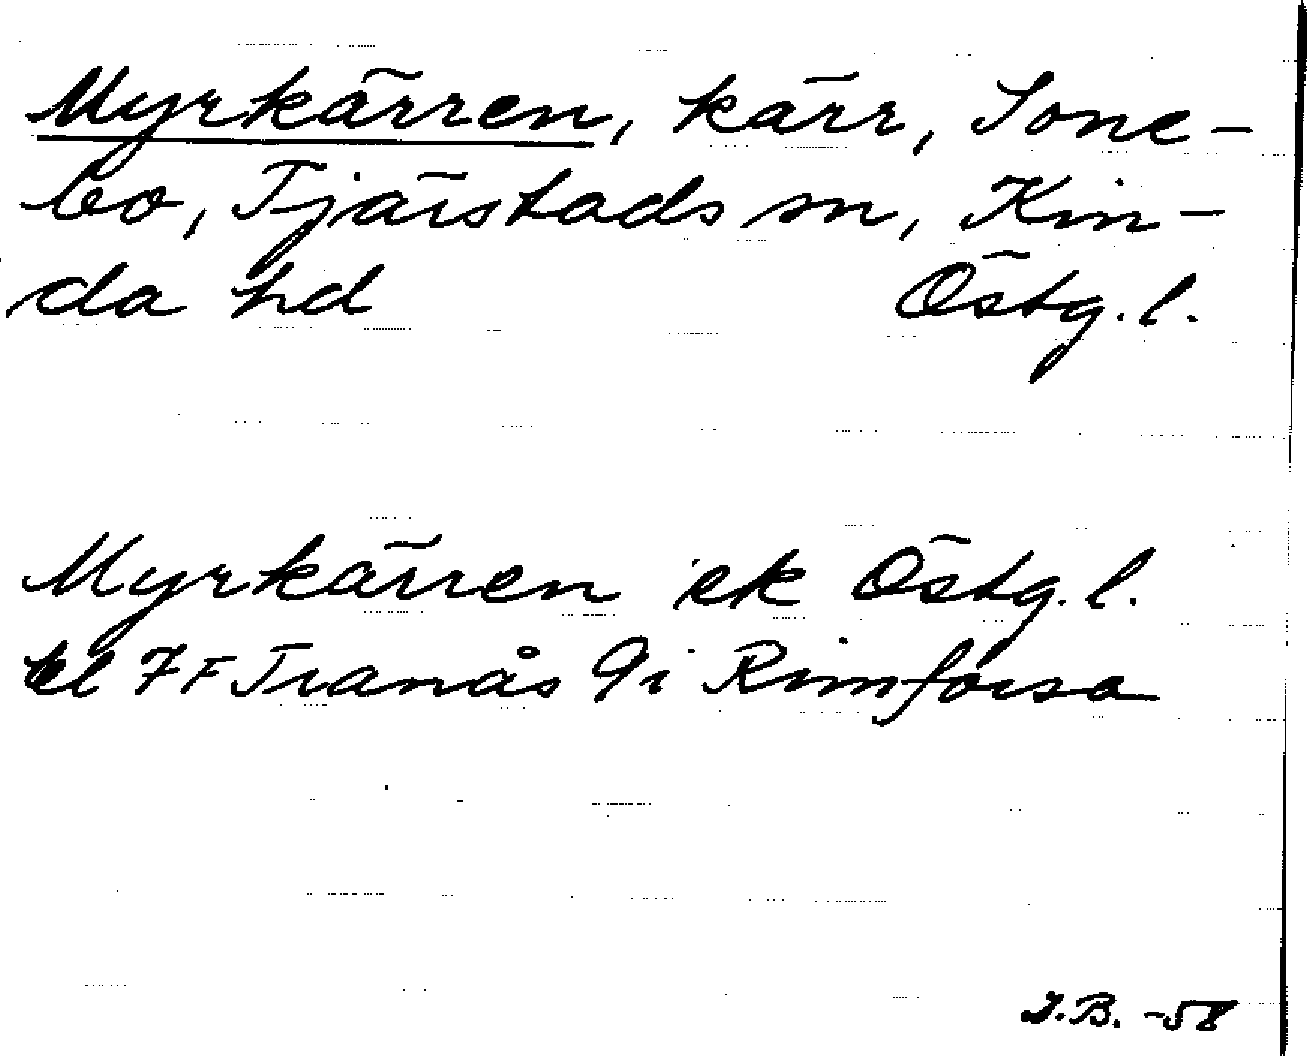 Myrkärren, kärr, Sone-
bo, Tjärstads sn, Kin-
da hd Östg. l.
Myrkärren ek Östg. l.
bl 7F Tranås 9i Rimforsa
J.B. -58